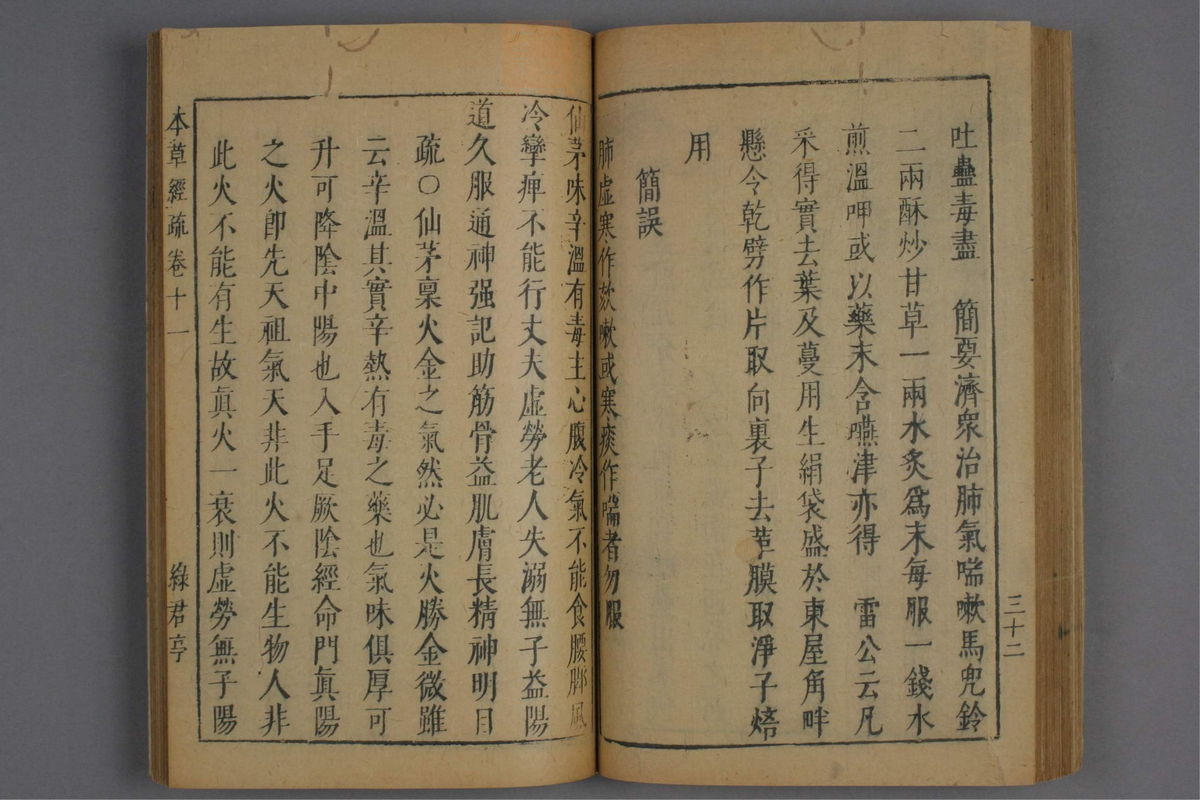 三十二
吐蠱毒盡　簡要濟衆治肺氣喘嗽馬兜鈴
二兩酥炒甘草一兩水炙爲末每服一錢水
煎溫呷或以藥末含嚥津亦得　雷公云凡
采得實去葉及蔓用生絹袋盛於東屋角畔
懸令乾劈作片取向裏子去革膜取淨子焙
用
簡誤
肺虛寒作欬嗽或寒痰作喘者勿服
仙茅味辛溫有毒主心腹冷氣不能食腰脚風
冷攣痺不能行丈夫虛勞老人失溺無子益陽
道久服通神强記助筋骨益肌膚長精神明目
疏○仙茅稟火金之氣然必是火勝金微雖
云辛溫其實辛熱有毒之藥也氣味俱厚可
升可降陰中陽也入手足厥陰經命門眞陽
之火卽先天祖氣天非此火不能生物人非
此火不能有生故眞火一衰則虛勞無子陽
本草經疏 卷十一
綠君亭